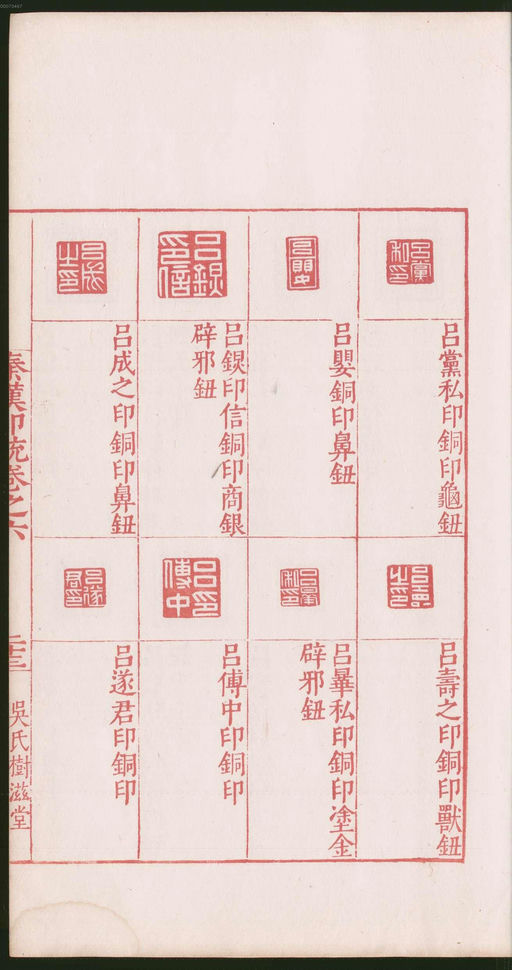 呂黨私印銅印龜鈕
呂嬰銅印鼻鈕
呂鍥印信銅印商銀
辟邪鈕
呂成之印銅印鼻鈕
呂壽之印銅印獸鈕
呂畢私印銅印塗金
辟邪鈕
呂傅中印銅印
呂遂君印銅印
秦漢印統卷之六
二十三
吳氏樹滋堂
00073467